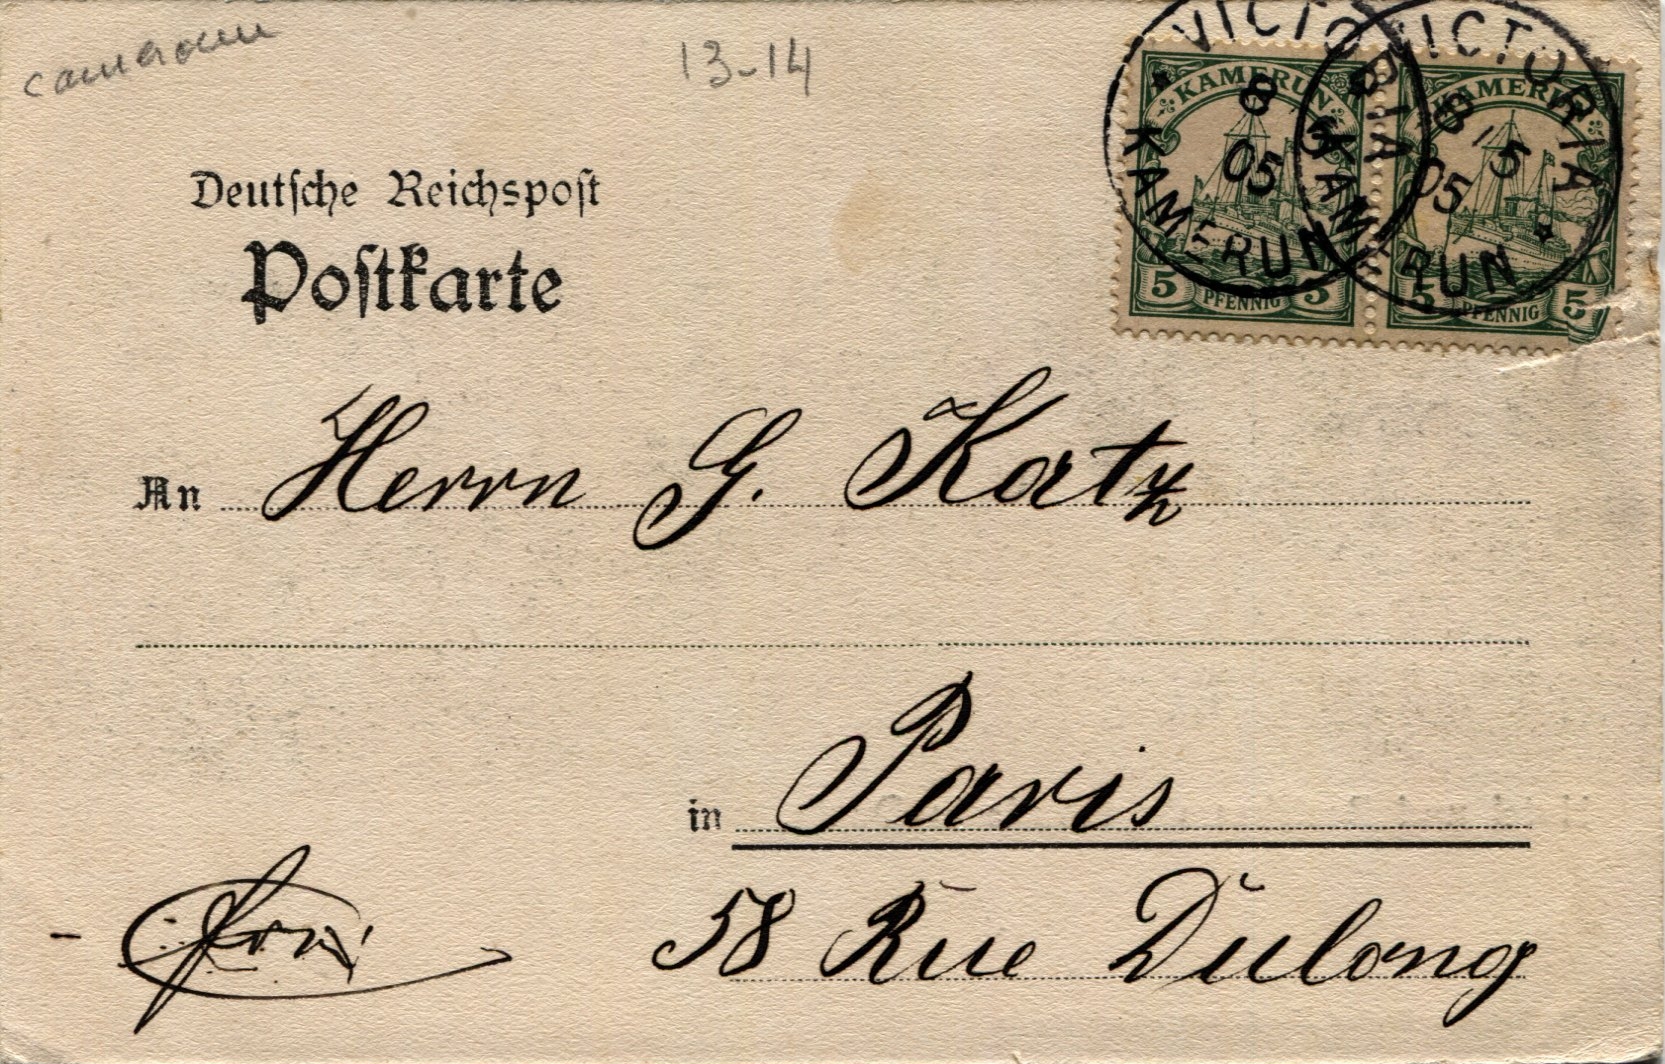 cameroun
13-14
VICTORIA
KAMERUN
8 5
05
VICTORIA
KAMERUN
8 5
05
KAMERUN
5 PFENNIG 5
KAMERUN
5 PFENNIG 5
Deutsche Reichspost
Postkarte
An Herrn G. Katz
in Paris
58 Rue Dulong